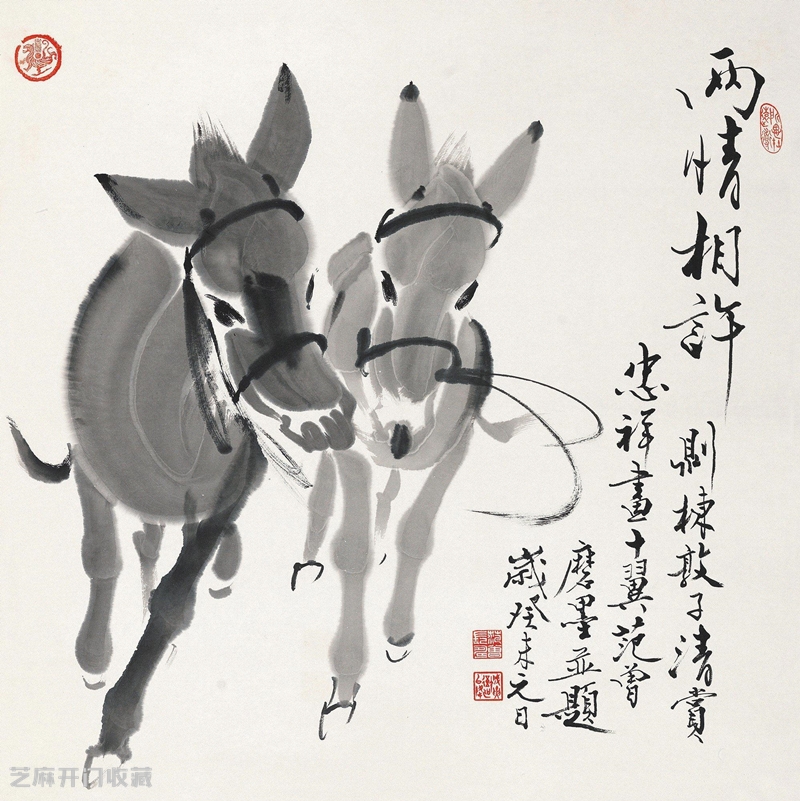 两情相許
剛棟敦子清賞
忠祥畫十翼范曾
磨墨並題
歲癸未元日
芝麻开门收藏